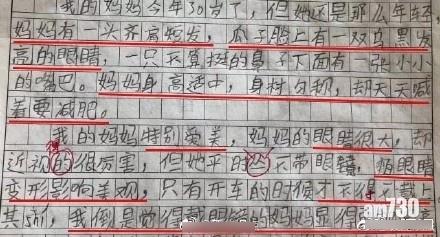 我的妈妈今年30岁了,但她还是那么年轻
妈妈有一头齐肩短发,瓜子脸上有一双乌黑发
亮的眼睛,一只不算挺的鼻子下面有一张小小
的嘴巴。妈妈身高适中,身材匀称,却天天喊
着要减肥。
我的妈妈特别爱美,妈妈的眼睛很大,却
得
近视的很厉害,但她平时 不带眼镜,怕眼睛
变形影响美观,只有开车的时候才不得不戴上
其实,我倒是觉得戴眼镜的妈妈显得
am730